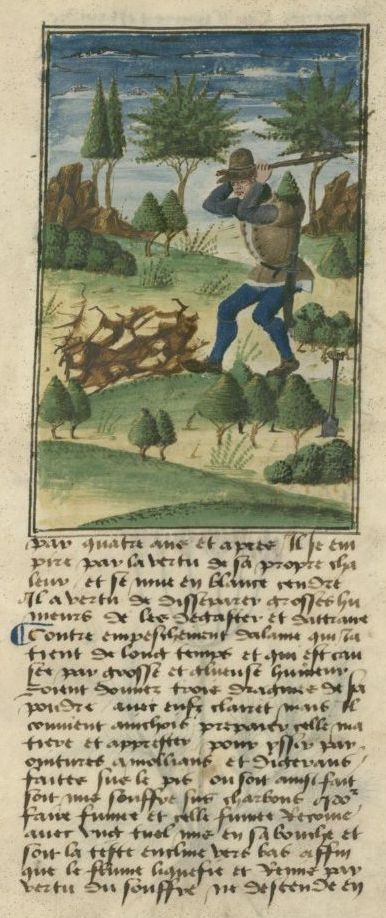 par quatre ans et apres / Il se em
pire par la vertu de sa propre cha
leur / et se mue en blance cendre
Il a vertu de disseparer grosses hu
meurs de les degaster et dattraire
Contre empeschement dalaine qui sa
tient de long temps et qui est cau
see par grosse et glueuse humeur
soient donnez trois dragmes de sa
pouldre / avec claret mais il
convient ainchois preparer celle ma
tiere et apprester / pour yssir par
oingtures amollians et digerans
faites sus le pis / ou soit ainsi fait
soit mis souffre sus charbons
faire fumee et celle fumee recoive
avec ung tuel mis en sa bouche et
soit la teste encline vers bas affin
que le fleume liquefie et venue par
vertu du souffre / ne descende en